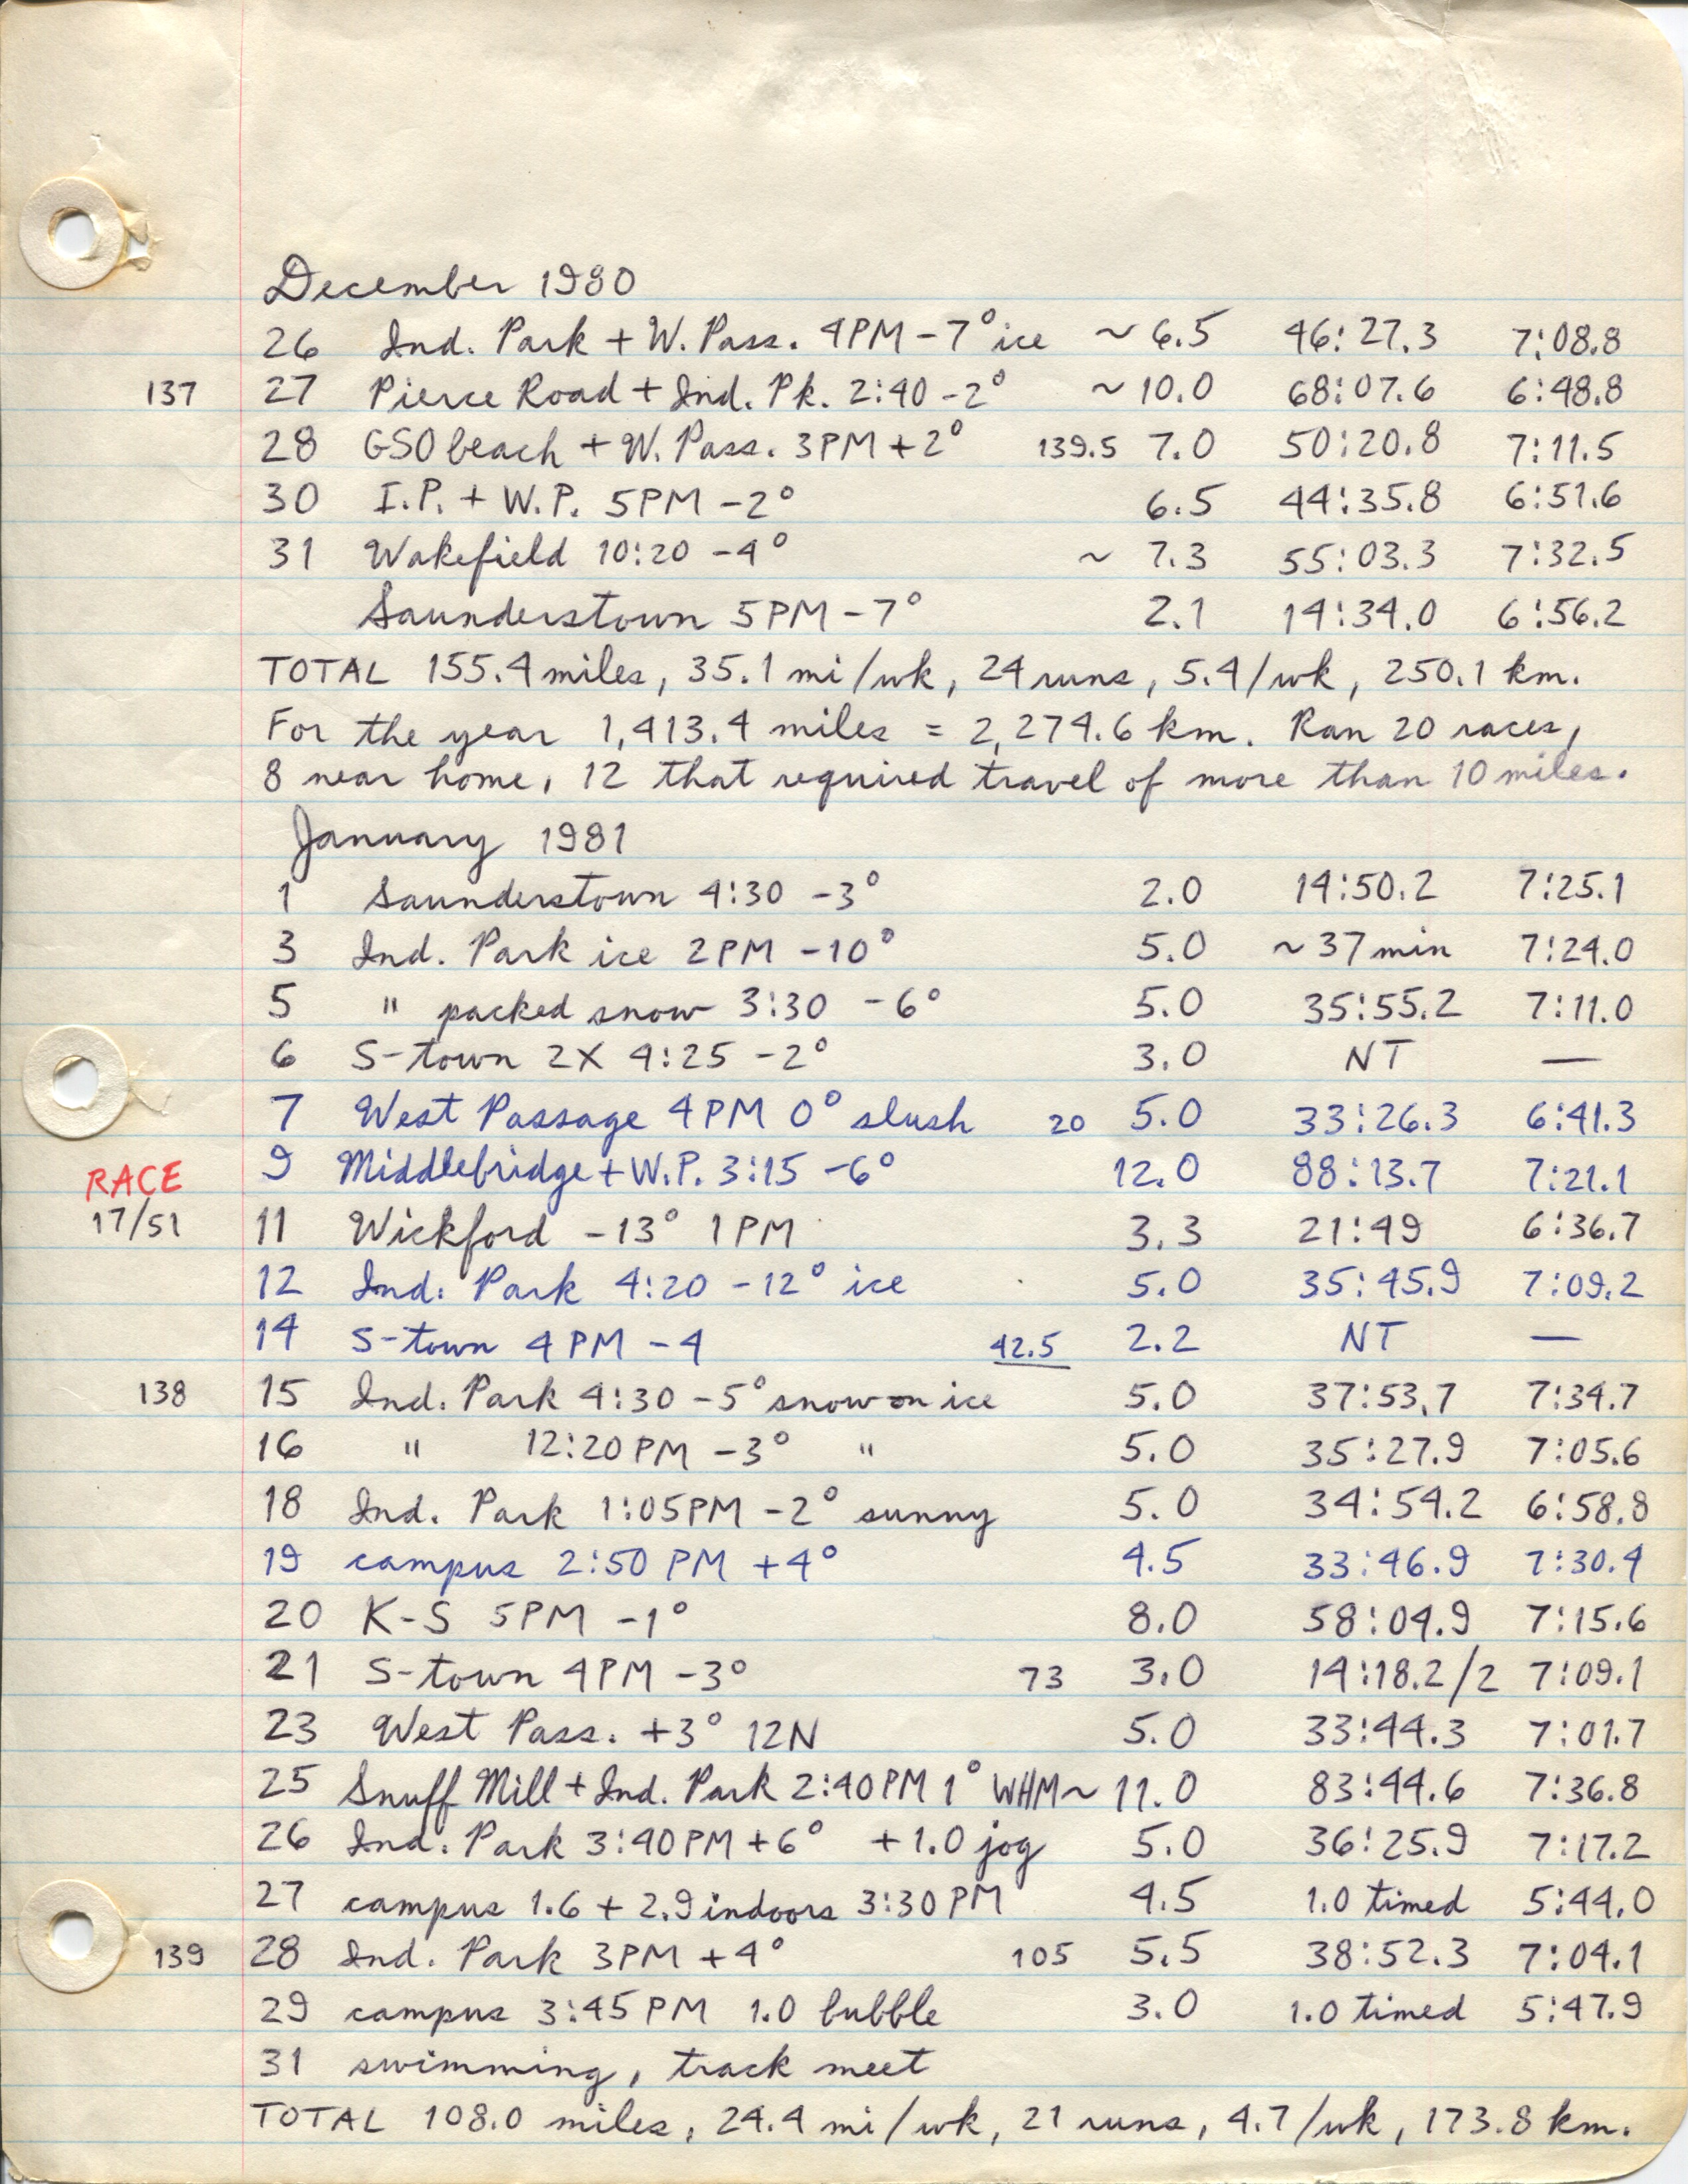 December 1980
26 Ind. Park + W. Pass. 4PM -7° ice ~ 6.5 46:27.3 7:08.8
137 27 Pierce Road + Ind. Pk. 2:40 -2° ~ 10.0 68:07.6 6:48.8
28 GSO beach + W. Pass. 3PM +2° 139.5 7.0 50:20.8 7:11.5
30 I.P. + W.P. 5PM -2° 6.5 44:35.8 6:51.6
31 Wakefield 10:20 -4° ~ 7.3 55:03.3 7:32.5
Saunderstown 5PM -7° 2.1 14:34.0 6:56.2
TOTAL 155.4 miles, 35.1 mi/wk, 24 runs, 5.4/wk, 250.1 km.
For the year 1,413.4 miles = 2,274.6 km. Ran 20 races,
8 near home, 12 that required travel of more than 10 miles.
January 1981
1 Saunderstown 4:30 -3° 2.0 14:50.2 7:25.1
3 Ind. Park ice 2PM -10° 5.0 ~37 min 7:24.0
5 " packed snow 3:30 -6° 5.0 35:55.2 7:11.0
6 S-town 2X 4:25 -2° 3.0 NT —
7 West Passage 4PM 0° slush 20 5.0 33:26.3 6:41.3
RACE 9 Middlebridge + W.P. 3:15 -6° 12.0 88:13.7 7:21.1
17/51 11 Wickford -13° 1PM 3.3 21:49 6:36.7
12 Ind. Park 4:20 -12° ice 5.0 35:45.9 7:09.2
14 S-town 4PM -4 42.5 2.2 NT —
138 15 Ind. Park 4:30 -5° snow on ice 5.0 37:53.7 7:34.7
16 " 12:20 PM -3° " 5.0 35:27.9 7:05.6
18 Ind. Park 1:05PM -2° sunny 5.0 34:54.2 6:58.8
19 campus 2:50 PM +4° 4.5 33:46.9 7:30.4
20 K-S 5PM -1° 8.0 58:04.9 7:15.6
21 S-town 4PM -3° 73 3.0 14:18.2/2 7:09.1
23 West Pass. +3° 12N 5.0 33:44.3 7:01.7
25 Snuff Mill + Ind. Park 2:40PM 1° WHM ~ 11.0 83:44.6 7:36.8
26 Ind. Park 3:40PM +6° +1.0 jog 5.0 36:25.9 7:17.2
27 campus 1.6 + 2.9 indoors 3:30 PM 4.5 1.0 timed 5:44.0
139 28 Ind. Park 3PM +4° 105 5.5 38:52.3 7:04.1
29 campus 3:45 PM 1.0 bubble 3.0 1.0 timed 5:47.9
31 swimming, track meet
TOTAL 108.0 miles, 24.4 mi/wk, 21 runs, 4.7/wk, 173.8 km.